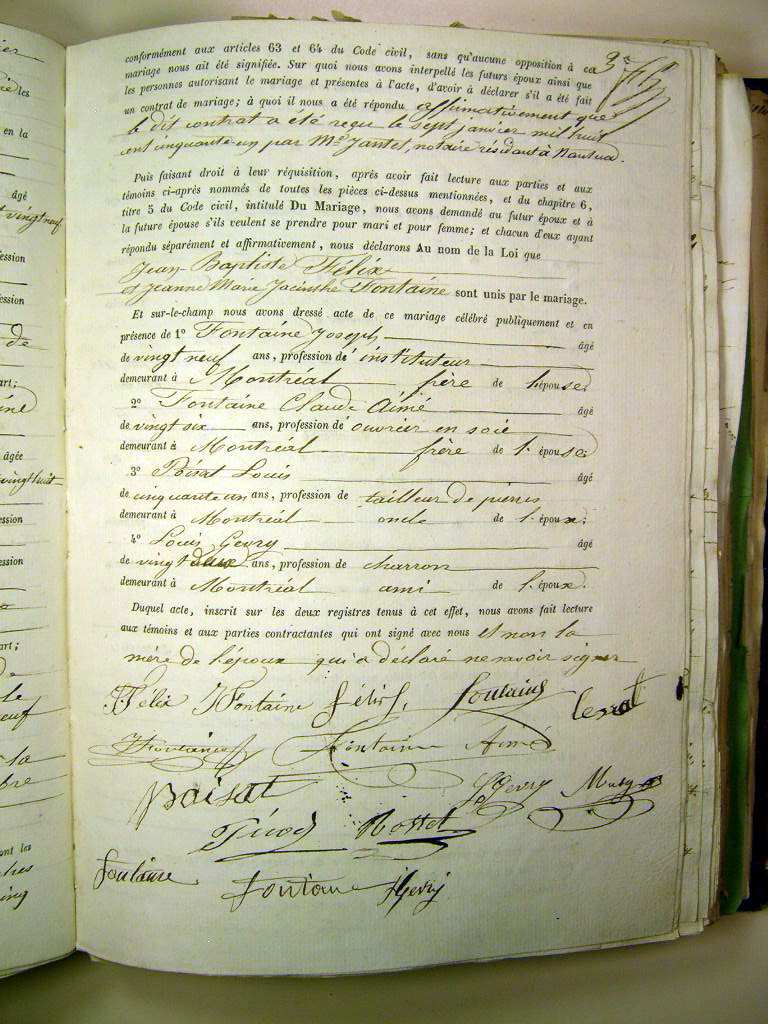 conformément aux articles 63 et 64 du Code civil, sans qu'aucune opposition à ce
mariage nous ait été signifiée. Sur quoi nous avons interpellé les futurs époux ainsi que
les personnes autorisant le mariage et présentes à l'acte, d'avoir à déclarer s'il a été fait
un contrat de mariage; à quoi il nous a été répondu affirmativement que
le dit contrat a été reçu le sept janvier mil huit
cent cinquante-un par Me Jantet, notaire résidant à Nantua.
Puis faisant droit à leur réquisition, après avoir fait lecture aux parties et aux
témoins ci-après nommés de toutes les pièces ci-dessus mentionnées, et du chapitre 6,
titre 5 du Code civil, intitulé Du Mariage, nous avons demandé au futur époux et à
la future épouse s'ils veulent se prendre pour mari et pour femme; et chacun d'eux ayant
répondu séparément et affirmativement, nous déclarons Au nom de la Loi que
Jean Baptiste Félix
et Jeanne Marie Jacinthe Fontaine sont unis par le mariage.
Et sur-le-champ nous avons dressé acte de ce mariage célébré publiquement et en
présence de 1º Fontaine Joseph âgé
de vingt neuf ans, profession de instituteur
demeurant à Montréal frère de l'épouse;
2º Fontaine Claude Aimé âgé
de vingt six ans, profession d'ouvrier en soie
demeurant à Montréal frère de l'épouse;
3º Poisat Louis âgé
de cinquante un ans, profession de tailleur de pierres
demeurant à Montréal oncle de l'époux;
4º Louis Gevry âgé
de vingt deux ans, profession de charron
demeurant à Montréal ami de l'époux.
Duquel acte, inscrit sur les deux registres tenus à cet effet, nous avons fait lecture
aux témoins et aux parties contractantes qui ont signé avec nous et non la
mère de l'époux qui a déclaré ne savoir signer
Félix J Fontaine Félix Fontaine
Fontaine Aimé
Poisat Gevry
Rosset
Fontaine
Fontaine Gevry